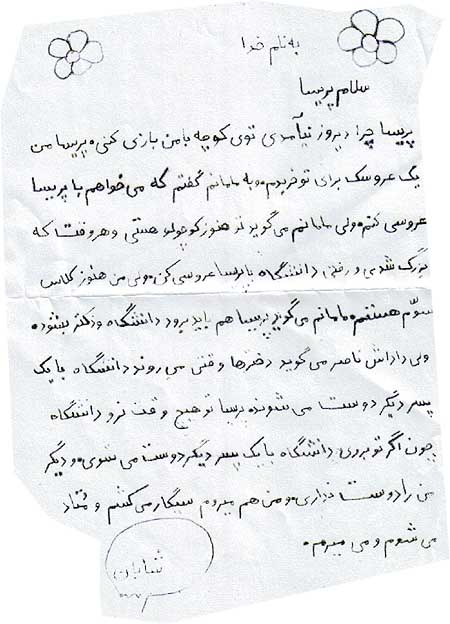 به نام خدا
سلام پریسا
پریسا چرا دیروز نیآمدی توی کوچه با من بازی کنی. پریسا من
یک عروسک برای تو خریدم. و به مامانم گفتم که می خواهم با پریسا
عروسی کنم. ولی مامانم می گوید تو هنوز کوچولو هستی و هر وقت که
بزرگ شدی و رفتی دانشگاه با پریسا عروسی کن. ولی من هنوز کلاس
سوّم هستم. مامانم می گوید پریسا هم باید برود دانشگاه و دکتر بشود.
ولی داداش ناصر می گوید دخترها وقتی می روند دانشگاه با یک
پسر دیگر دوست می شوند. پریسا تو هیچ وقت نرو دانشگاه
چون اگر تو بروی دانشگاه با یک پسر دیگر دوست می شوی. و دیگر
من را دوست نداری. و من هم میروم سیگار می کشم و مُتاد
می شوم و می میرم.
شایان